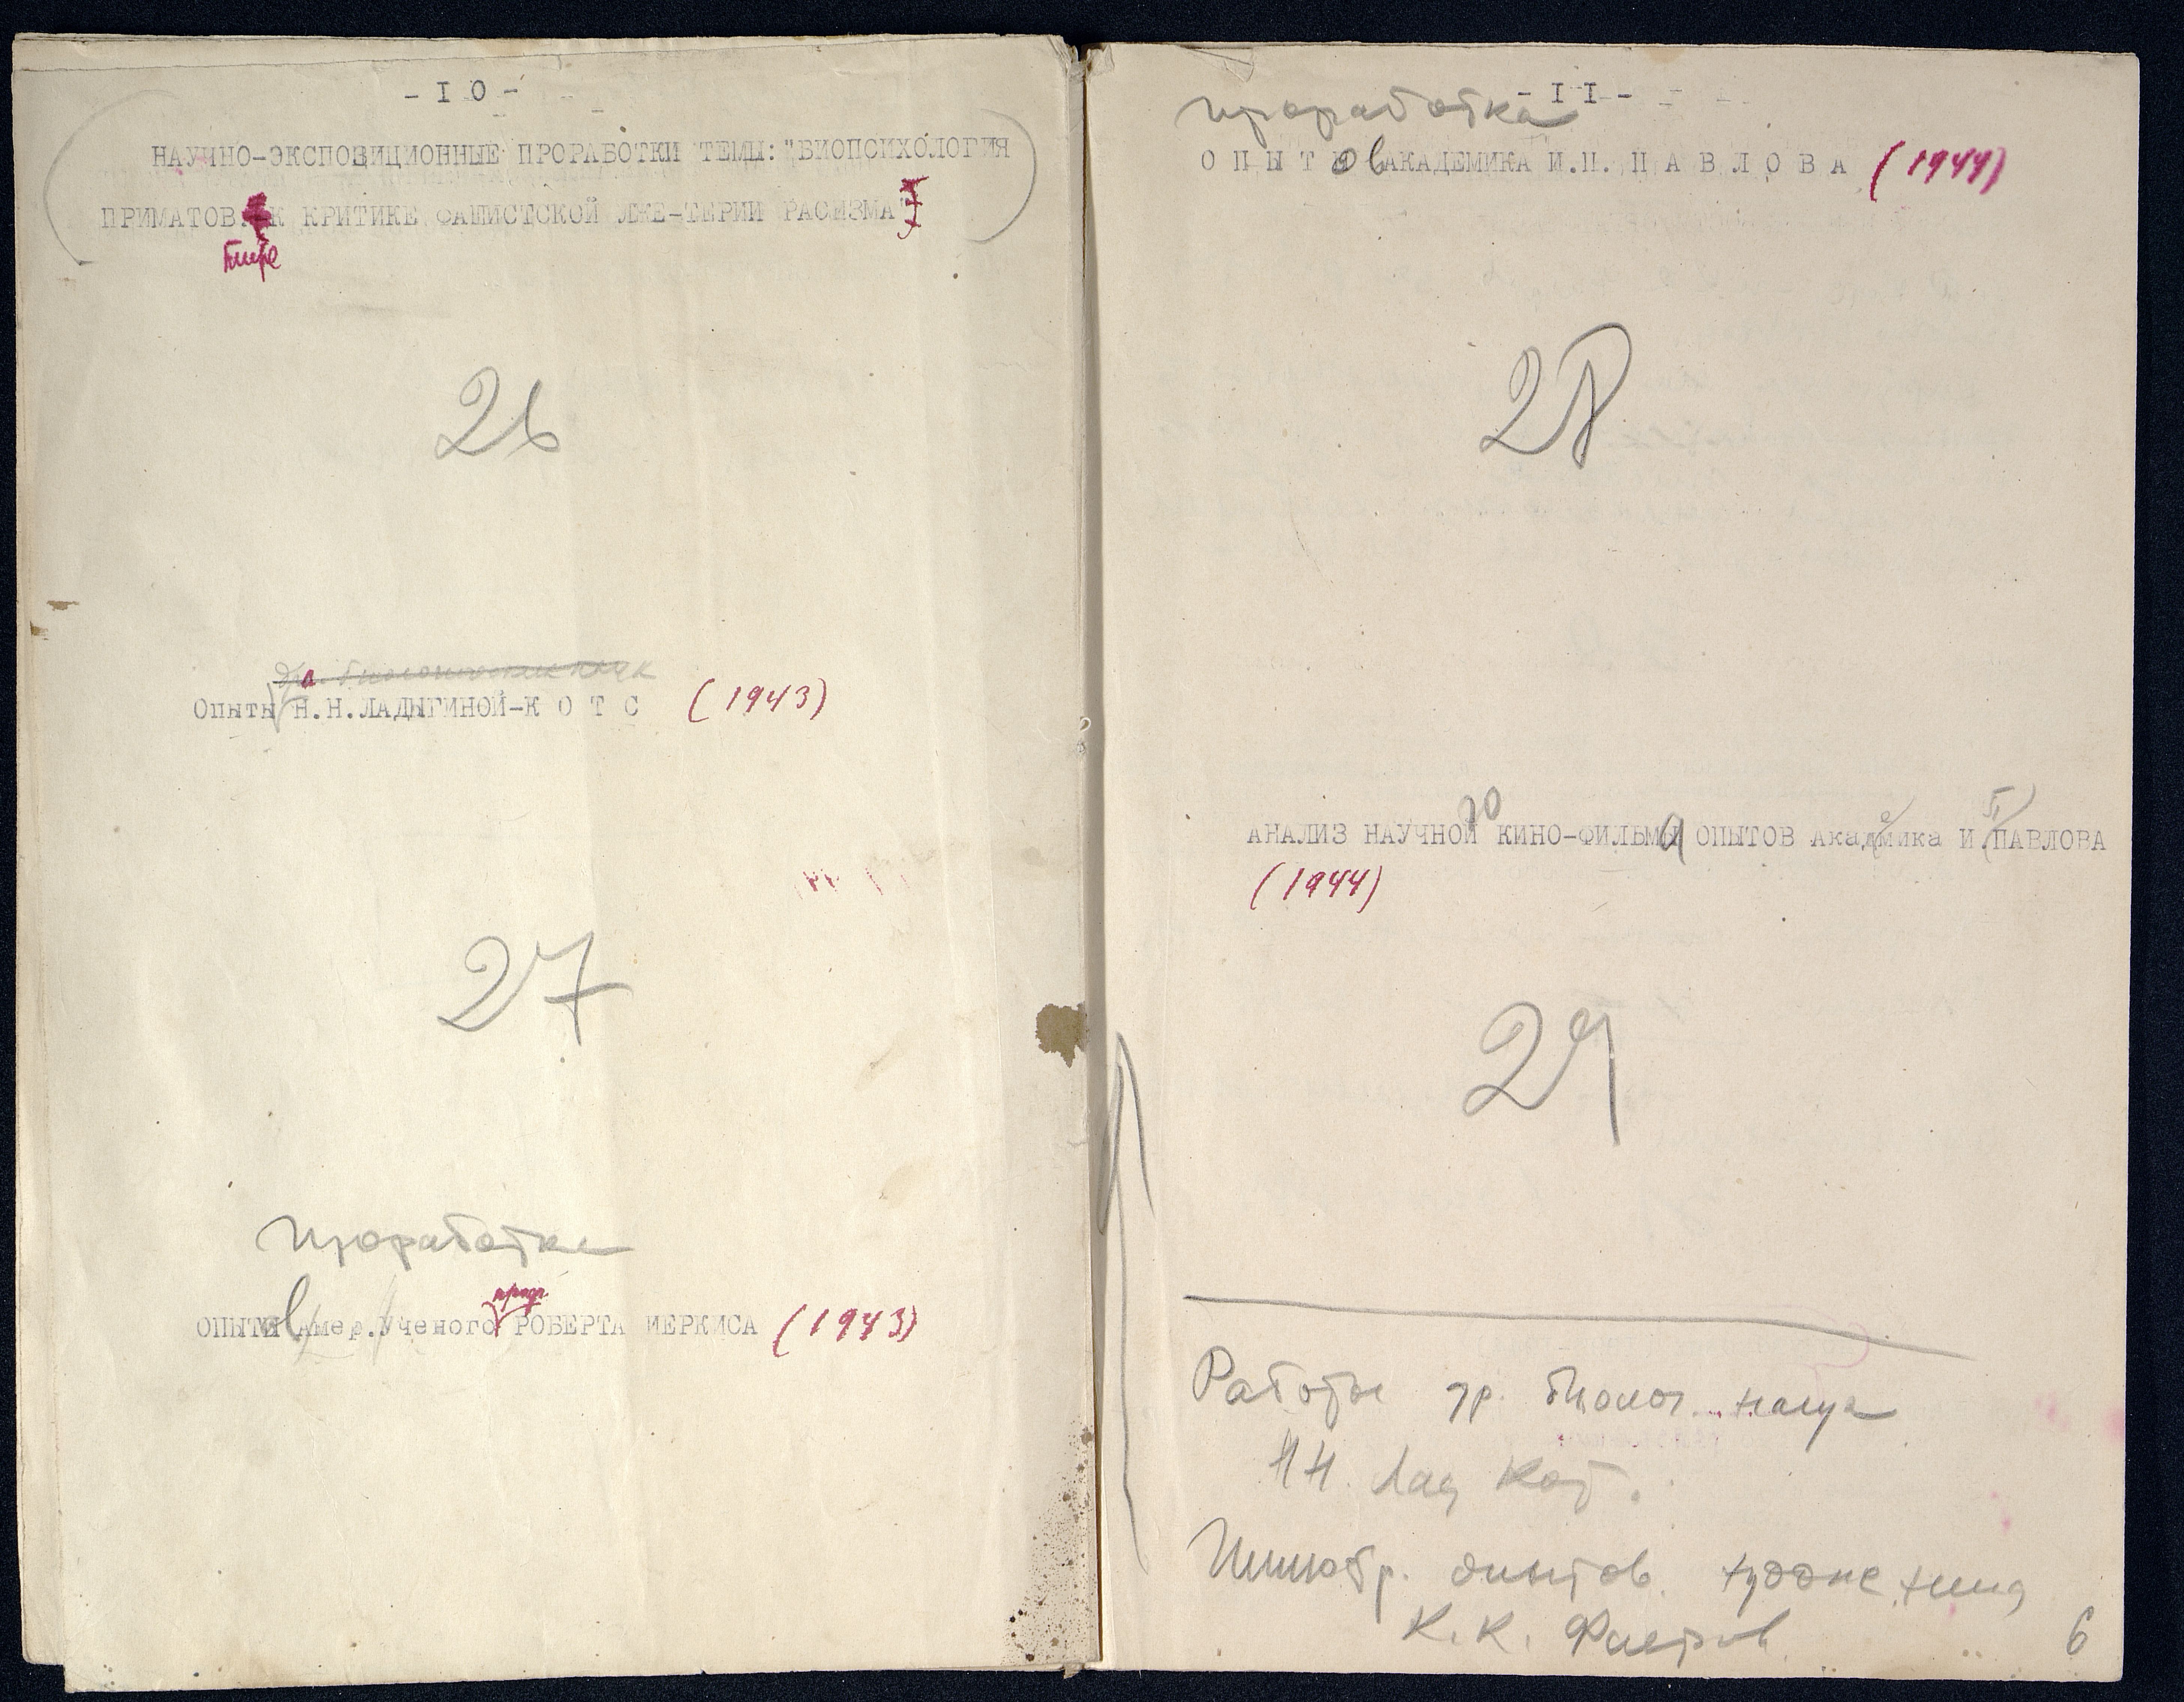 - I 0 -
НАУЧНО-ЭКСПОЗИЦИОННЫЕ ПРОРАБОТКИ ТЕМЫ: "БИОПСИХОЛОГИЯ
ПРИМАТОВ К КРИТИКЕ ФАШИСТСКОЙ ЛЖЕ-ТЕРИИ РАСИЗМА"
тире
26
д-ра биологических наук
Опыты Н.Н.ЛАДЫГИНОЙ-К О Т С (1943)
27
Проработка
ОПЫТов Амер.Ученого проф. РОБЕРТА ИЕРКИСА (1943)
- I I -
Проработка
О П Ы Т ов АКАДЕМИКА И.П. П А В Л О В А (1944)
28
АНАЛИЗ НАУЧНОго КИНО-ФИЛЬМа ОПЫТОВ Академика И.П.ПАВЛОВА
(1944)
29
Работы др. биолог. наук
НН. Лад Котс.
Иллюстр. опытов. худжне
К. К. Флеров
6